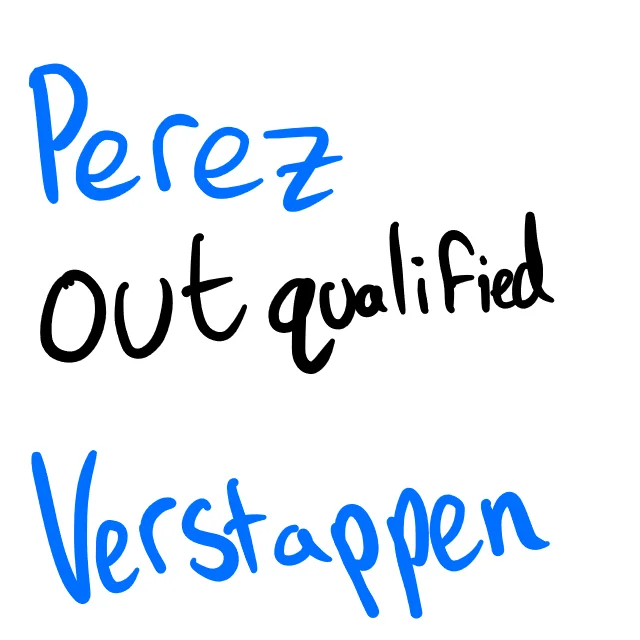 Perez
out qualified
Verstappen